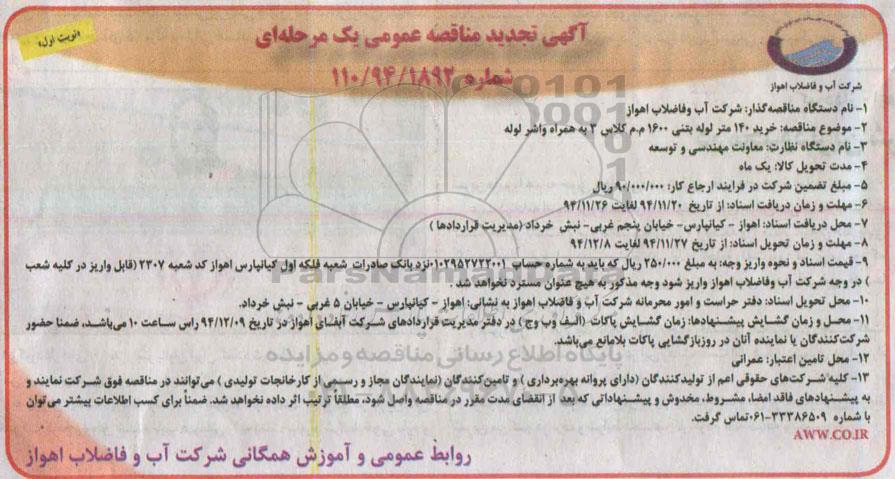 آگهی تجدید مناقصه عمومی یک مرحله‌ای
شماره ۱۱۰/۹۴/۱۸۹۲
«نوبت اول»
شرکت آب و فاضلاب اهواز
۱- نام دستگاه مناقصه‌گذار: شرکت آب وفاضلاب اهواز
۲- موضوع مناقصه: خرید ۱۴۰ متر لوله بتنی ۱۶۰۰ م.م کلاس ۳ به همراه واشر لوله
۳- نام دستگاه نظارت: معاونت مهندسی و توسعه
۴- مدت تحویل کالا: یک ماه
۵- مبلغ تضمین شرکت در فرایند ارجاع کار: ۹۰/۰۰۰/۰۰۰ ریال
۶- مهلت و زمان دریافت اسناد: از تاریخ ۹۴/۱۱/۲۰ لغایت ۹۴/۱۱/۲۶
۷- محل دریافت اسناد: اهواز - کیانپارس- خیابان پنجم غربی- نبش خرداد (مدیریت قراردادها )
۸- مهلت و زمان تحویل اسناد: از تاریخ ۹۴/۱۱/۲۷ لغایت ۹۴/۱۲/۸
۹- قیمت اسناد و نحوه واریز وجه: به مبلغ ۲۵۰/۰۰۰ ریال که باید به شماره حساب ۰۱۰۲۹۵۲۷۲۲۰۰۱نزد بانک صادرات شعبه فلکه اول کیانپارس اهواز کد شعبه ۲۳۰۷ (قابل واریز در کلیه شعب
) در وجه شرکت آب وفاضلاب اهواز واریز شود وجه مذکور به هیچ عنوان مسترد نخواهد شد .
۱۰- محل تحویل اسناد: دفتر حراست و امور محرمانه شرکت آب و فاضلاب اهواز به نشانی: اهواز - کیانپارس - خیابان ۵ غربی - نبش خرداد.
۱۱- محل و زمان گشایش پیشنهادها: زمان گشایش پاکات (الف وب وج) در دفتر مدیریت قراردادهای شرکت آبفای اهواز در تاریخ ۹۴/۱۲/۰۹ راس ساعت ۱۰ می‌باشد، ضمنا حضور
شرکت‌کنندگان یا نماینده آنان در روزبازگشایی پاکات بلامانع می‌باشد.
۱۲- محل تامین اعتبار: عمرانی
۱۳- کلیه شرکت‌های حقوقی اعم از تولیدکنندگان (دارای پروانه بهره‌برداری ) و تامین‌کنندگان (نمایندگان مجاز و رسمی از کارخانجات تولیدی ) می‌توانند در مناقصه فوق شرکت نمایند و
به پیشنهادهای فاقد امضا، مشروط، مخدوش و پیشنهاداتی که بعد از انقضای مدت مقرر در مناقصه واصل شود، مطلقاً ترتیب اثر داده نخواهد شد. ضمناً برای کسب اطلاعات بیشتر می‌توان
با شماره ۳۳۳۸۶۵۰۹-۰۶۱تماس گرفت.
AWW.CO.IR
روابط عمومی و آموزش همگانی شرکت آب و فاضلاب اهواز
ParsNamadData
پایگاه اطلاع رسانی مناقصه و مزایده